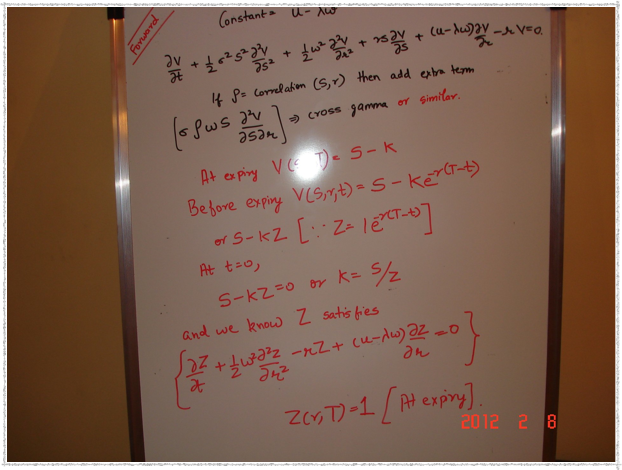 Constant = u - λw
Forward
∂V/∂t + 1/2 σ² S² ∂²V/∂S² + 1/2 w² ∂²V/∂r² + rS ∂V/∂S + (u-λw) ∂V/∂r - rV = 0.
If ρ = correlation (S, r) then add extra term
[σ ρ w S ∂²V/∂S∂r] ⇒ cross gamma or similar.
At expiry V(S, T) = S - K
Before expiry V(S,r,t) = S - Ke^-r(T-t)
or S - KZ [∵ Z = 1e^-r(T-t)]
At t=0,
S-KZ=0 or K = S/Z
and we know Z satisfies
{∂Z/∂t + 1/2 w² ∂²Z/∂r² - rZ + (u-λw) ∂Z/∂r = 0}
Z(r,T)=1 [At expiry].
2012 2 8